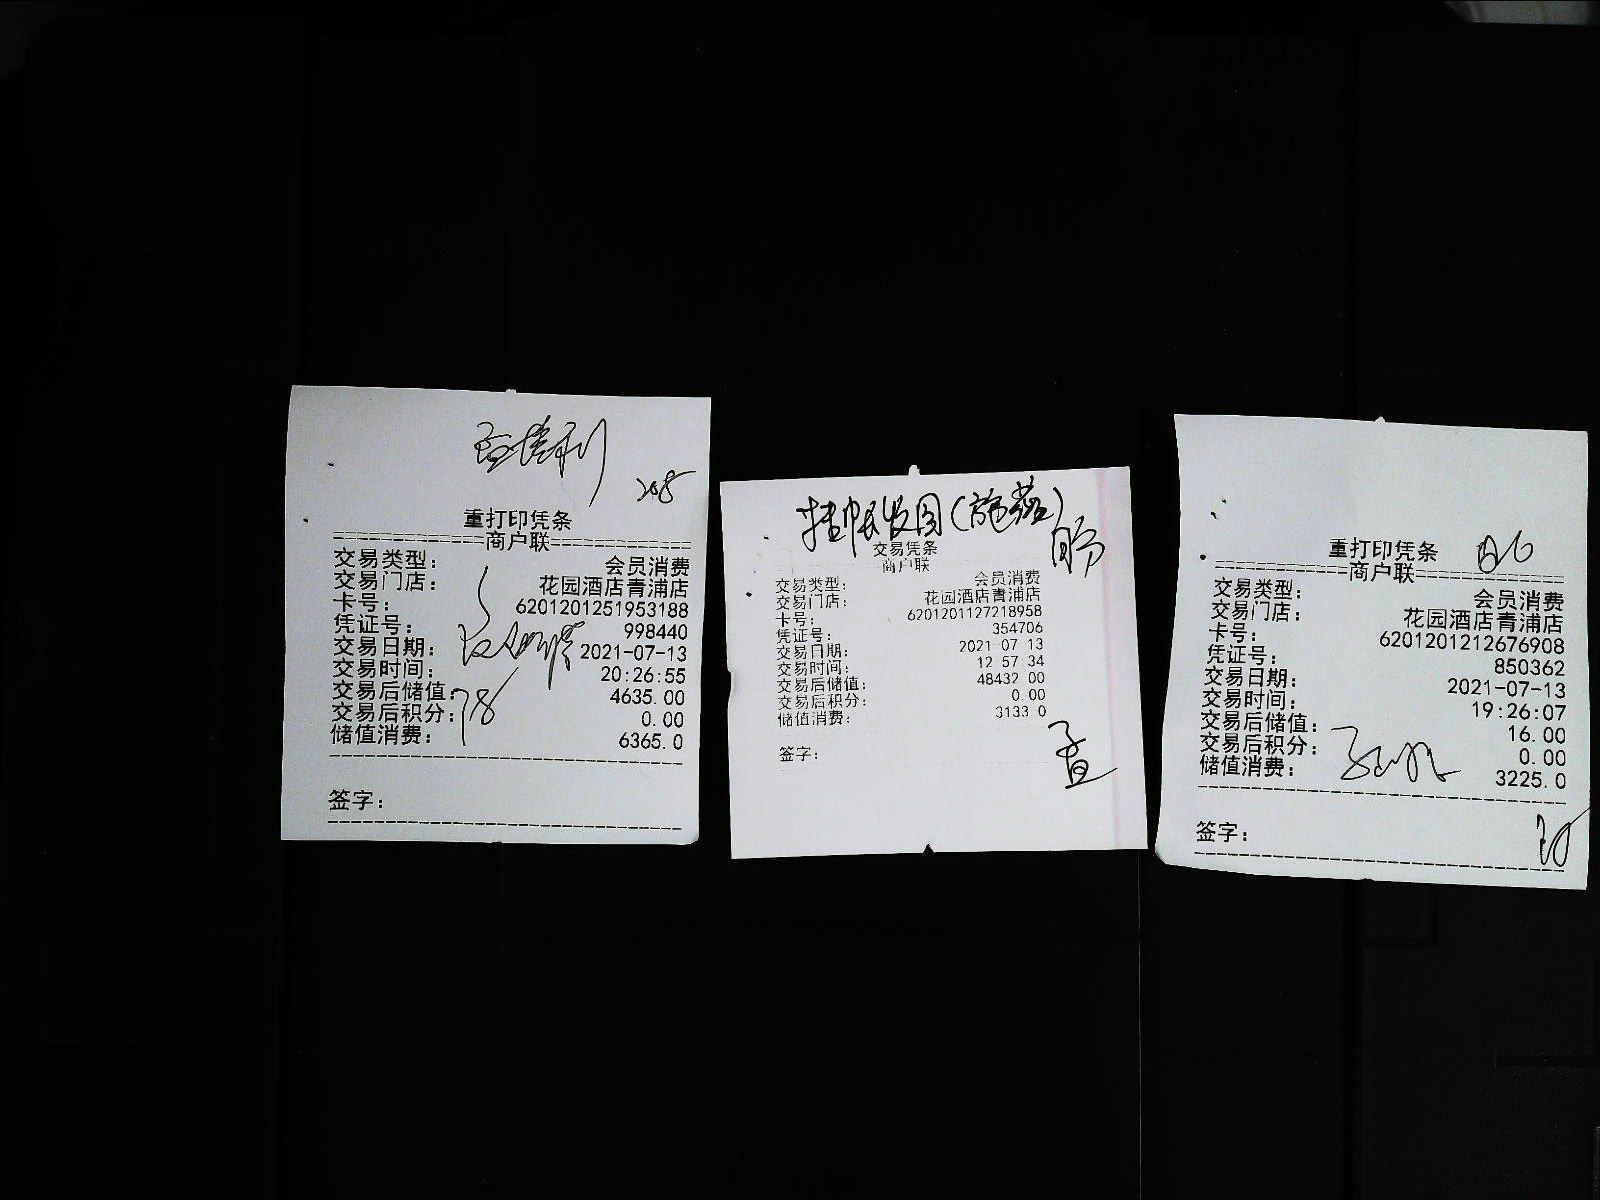 重打印凭条
商户联
交易类型： 会员消费
交易门店： 花园酒店青浦店
卡号： 6201201251953188
凭证号： 998440
交易日期： 2021-07-13
交易时间： 20:26:55
交易后储值： 4635.00
交易后积分： 0.00
储值消费： 6365.0
签字：
78
交易凭条
商户联
交易类型： 会员消费
交易门店： 花园酒店青浦店
卡号： 6201201127218958
凭证号： 354706
交易日期： 2021 07 13
交易时间： 12 57 34
交易后储值： 48432 00
交易后积分： 0 00
储值消费： 3133 0
签字：
重打印凭条
商户联
交易类型： 会员消费
交易门店： 花园酒店青浦店
卡号： 6201201212676908
凭证号： 850362
交易日期： 2021-07-13
交易时间： 19:26:07
交易后储值： 16.00
交易后积分： 0.00
储值消费： 3225.0
签字：